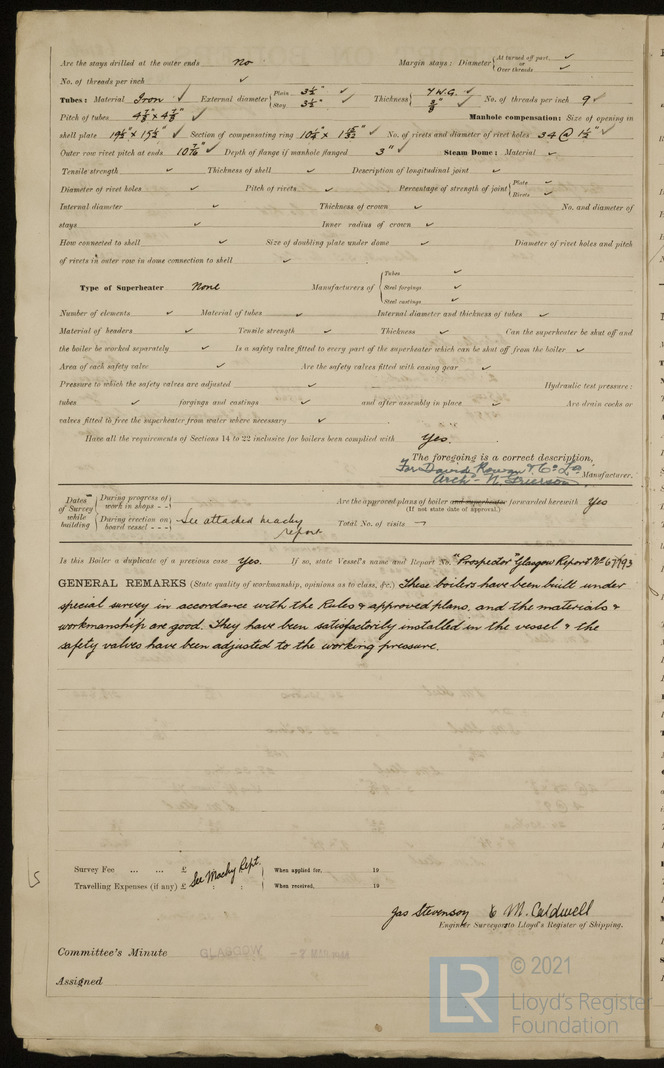 Are the stays drilled at the outer ends No Margin stays: Diameter { At turned off part ✓ or Over threads ✓
No. of threads per inch ✓
Tubes: Material Iron ✓ External diameter { Plain 3½" ✓ Stay 3½" ✓ Thickness { 7 W.G. ✓ 3/8" ✓ No. of threads per inch 9 ✓
Pitch of tubes 4⅞" x 4⅞" ✓ Manhole compensation: Size of opening in
shell plate 19½" x 15½" ✓ Section of compensating ring ✓ No. of rivets and diameter of rivet holes 34 @ 1½" ✓
Outer row rivet pitch at ends 10 7/16" ✓ Depth of flange if manhole flanged 3" ✓ Steam Dome: Material ✓
Tensile strength ✓ Thickness of shell ✓ Description of longitudinal joint ✓
Diameter of rivet holes ✓ Pitch of rivets ✓ Percentage of strength of joint { Plate ✓ Rivets ✓
Internal diameter ✓ Thickness of crown ✓ No. and diameter of
stays ✓ Inner radius of crown ✓
How connected to shell ✓ Size of doubling plate under dome ✓ Diameter of rivet holes and pitch
of rivets in outer row in dome connection to shell ✓
Type of Superheater None Manufacturers of { Tubes ✓ Steel forgings ✓ Steel castings ✓
Number of elements ✓ Material of tubes ✓ Internal diameter and thickness of tubes ✓
Material of headers ✓ Tensile strength ✓ Thickness ✓ Can the superheater be shut off and
the boiler be worked separately ✓ Is a safety valve fitted to every part of the superheater which can be shut off from the boiler ✓
Area of each safety valve ✓ Are the safety valves fitted with easing gear ✓
Pressure to which the safety valves are adjusted ✓ Hydraulic test pressure:
tubes ✓ forgings and castings ✓ and after assembly in place ✓ Are drain cocks or
valves fitted to free the superheater from water where necessary ✓
Have all the requirements of Sections 14 to 22 inclusive for boilers been complied with Yes.
The foregoing is a correct description,
For David Rowan & Co. Ld.
Archd. N. Grierson Manufacturer.
Dates of Survey while building { During progress of work in shops - - During erection on board vessel - - - See attached machy report
Are the approved plans of boiler and superheater forwarded herewith Yes
(If not state date of approval.)
Total No. of visits
Is this Boiler a duplicate of a previous case Yes. If so, state Vessel's name and Report No. "Prospector" Glasgow Report No 67793
GENERAL REMARKS (State quality of workmanship, opinions as to class, &c.) These boilers have been built under
special survey in accordance with the Rules & approved plans, and the materials &
workmanship are good. They have been satisfactorily installed in the vessel & the
safety valves have been adjusted to the working pressure.
Survey Fee ... ... £ See Machy Rept. When applied for, 19
Travelling Expenses (if any) £ : : When received, 19
Jas Stevenson & M. Caldwell
Engineer Surveyors to Lloyd's Register of Shipping.
Committee's Minute GLASGOW
Assigned
LR © 2021
Lloyd's Register
Foundation